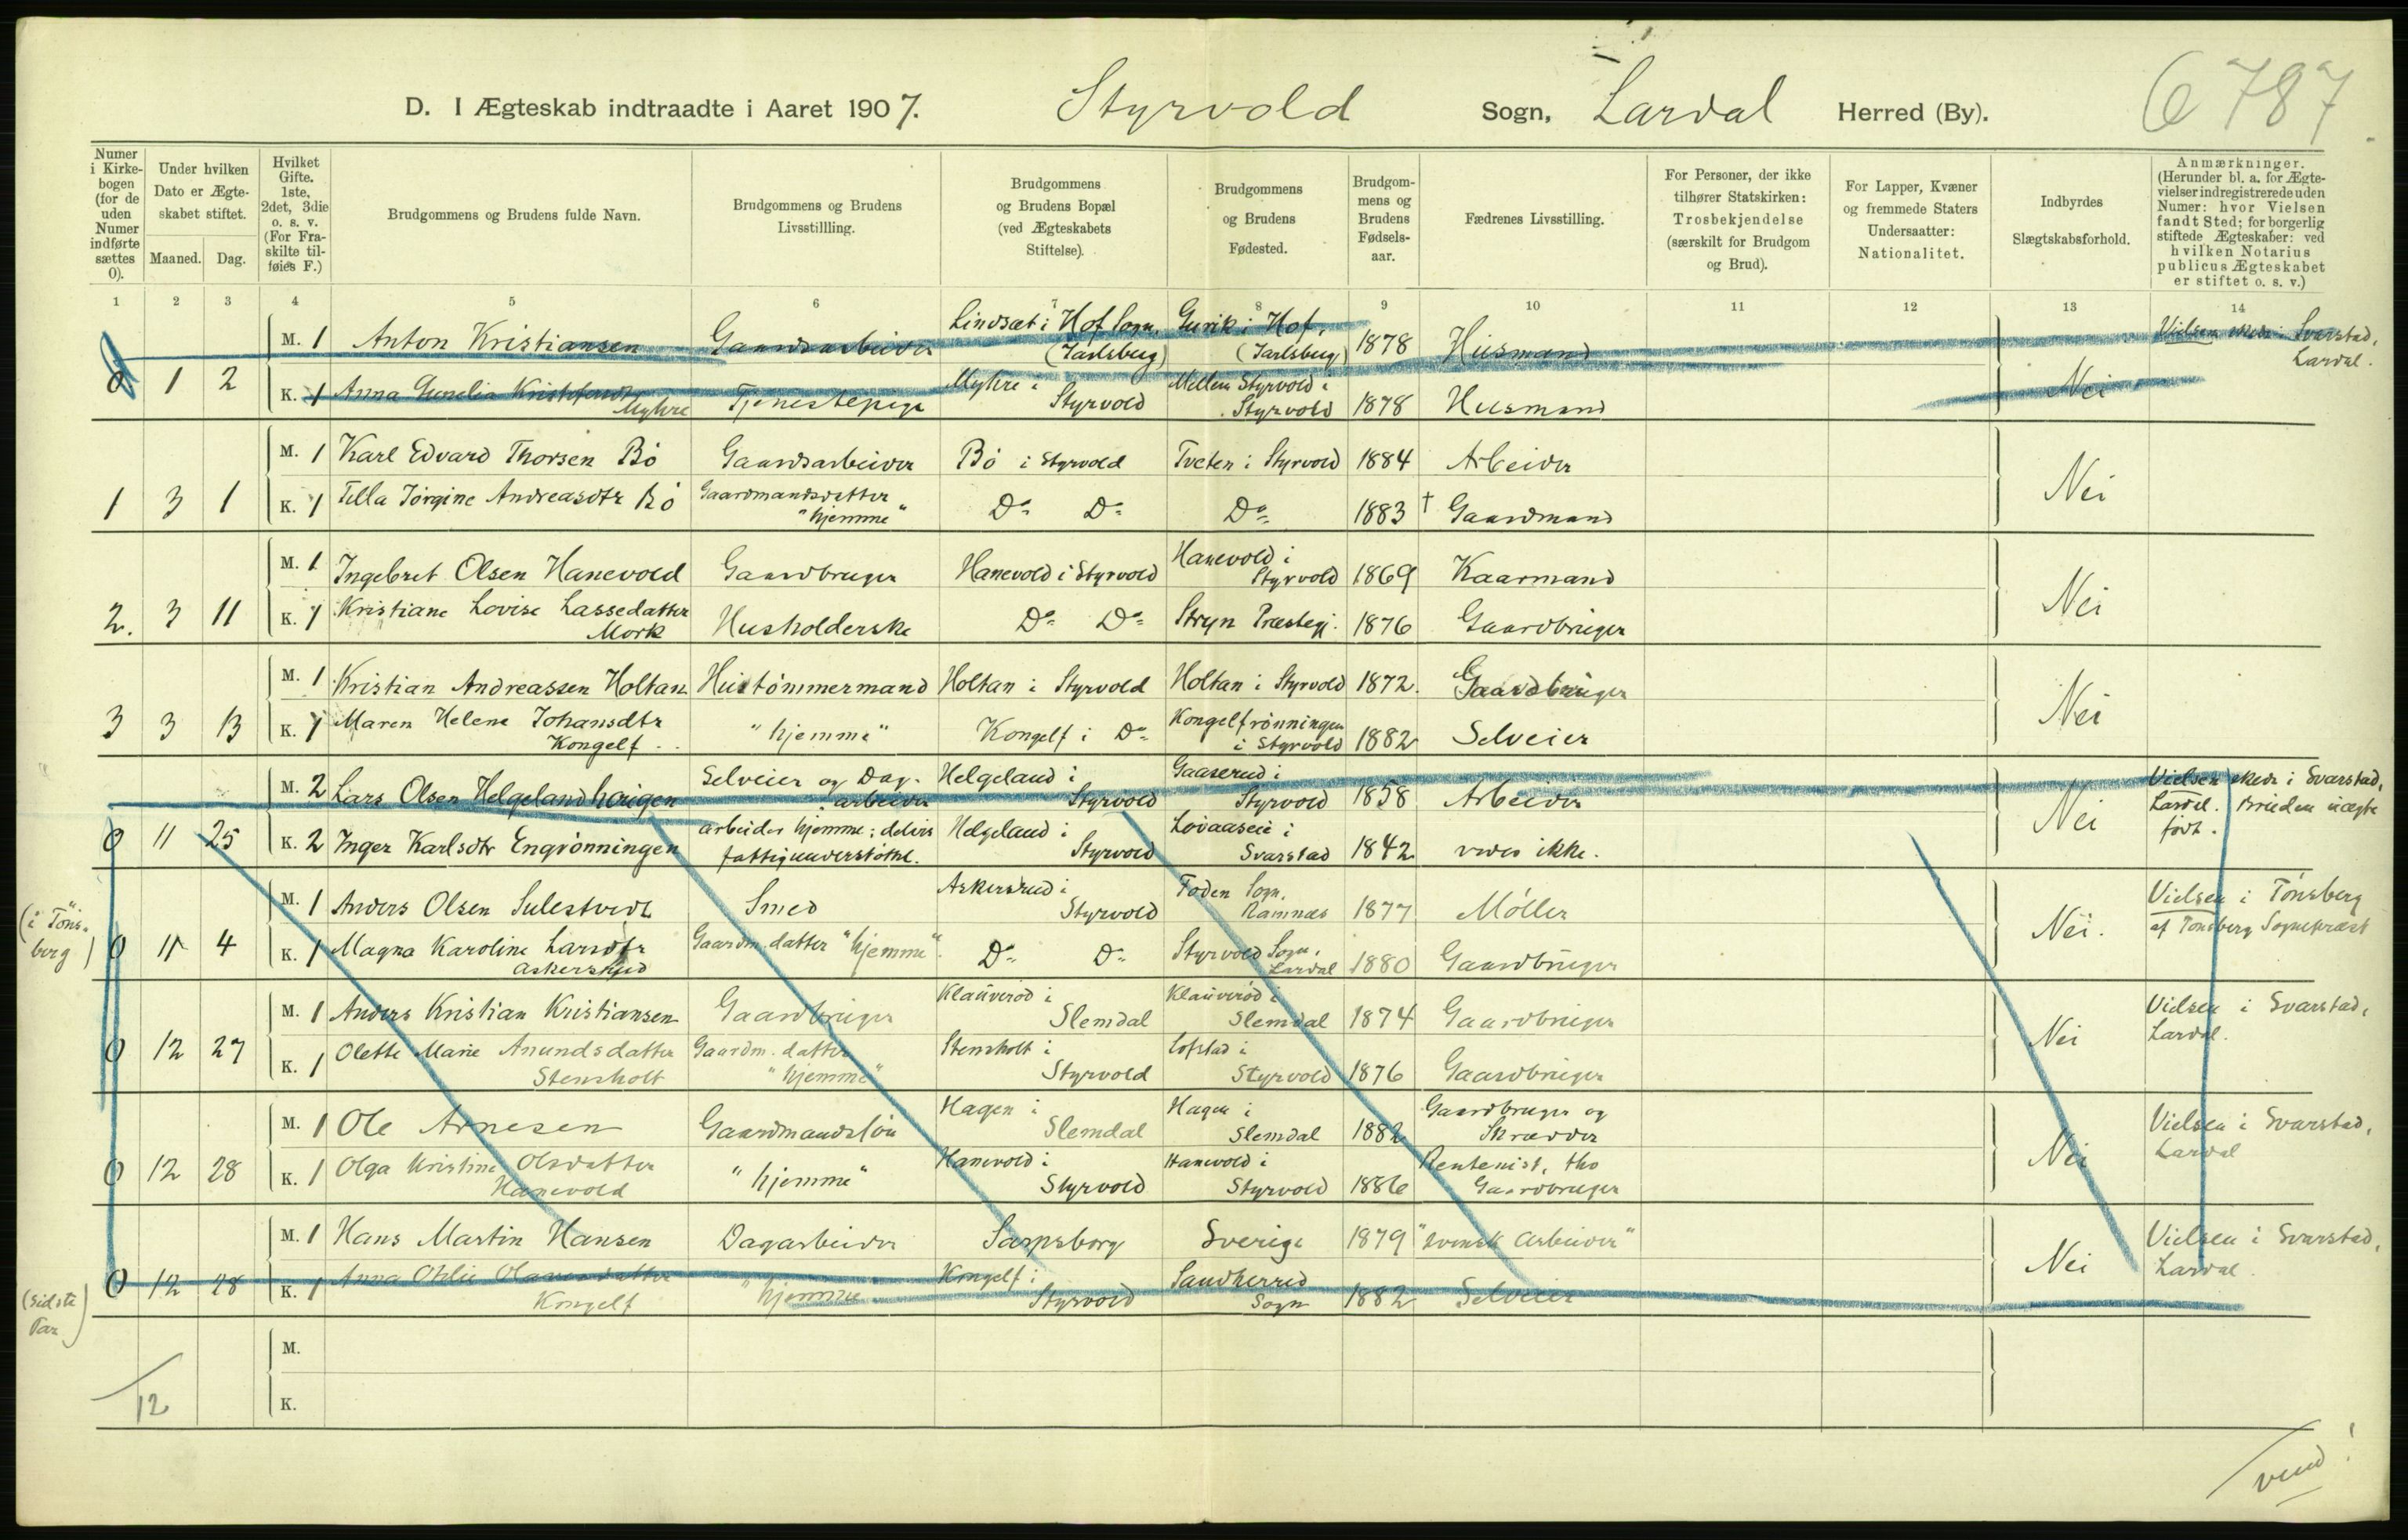 6787
D. I Ægteskab indtraadte i Aaret 1907. Styrvold Sogn, Lardal Herred (By).
Numer i Kirkebogen (for de uden Numer indførte sættes 0).
Under hvilken Dato er Ægteskabet stiftet.
Maaned. Dag.
Hvilket Gifte. 1ste, 2det, 3die o. s. v. (For Fraskilte tilføies F.)
Brudgommens og Brudens fulde Navn.
Brudgommens og Brudens Livsstillling.
Brudgommens og Brudens Bopæl (ved Ægteskabets Stiftelse).
Brudgommens og Brudens Fødested.
Brudgommens og Brudens Fødselsaar.
Fædrenes Livsstilling.
For Personer, der ikke tilhører Statskirken: Trosbekjendelse (særskilt for Brudgom og Brud).
For Lapper, Kvæner og fremmede Staters Undersaatter: Nationalitet.
Indbyrdes Slægtskabsforhold.
Anmærkninger. (Herunder bl. a. for Ægtevielser indregistrerede uden Numer: hvor Vielsen fandt Sted; for borgerlig stiftede Ægteskaber: ved hvilken Notarius publicus Ægteskabet er stiftet o. s. v.)
1 2 3 4 5 6 7 8 9 10 11 12 13 14
M. 1 Anton Kristiansen Gaardsarbeider Lindsæt i Hof Sogn, (Jarlsberg) i Hof, (Jarlsberg) 1878 Husmand Vielsen skede i Svarstad, Lardal.
0 1 2 K. 1 Anna Myhre Tjenestepige Myhre i Styrvold Mellem Styrvold i Styrvold 1878 Husmand Nei
M. 1 Karl Edvard Thorsen Bö Gaardsarbeider Bö i Styrvold Tveten i Styrvold 1884 Arbeider
1 3 1 K. 1 Tella Jörgine Andreasdtr Bö Gaardmandsdatter "hjemme" Do Do Do 1883 † Gaardmand Nei
M. 1 Ingebret Olsen Hanevold Gaardbruger Hanevold i Styrvold Hanevold i Styrvold 1869 Kaarmand
2. 3 11 K. 1 Kristiane Lovise Lassedatter Mork Husholderske Do Do Stryn Præstegj. 1876 Gaardbruger Nei
M. 1 Kristian Andreassen Holtan Hustömmermand Holtan i Styrvold Holtan i Styrvold 1872. Gaardbruger
3 3 13 K. 1 Maren Helene Johansdtr Kongelf "hjemme" Kongelf i Do Kongelfrönningen i Styrvold 1882 Selveier Nei
M. 2 Lars Olsen Helgelandhaugen Selveier og Dagarbeider Helgeland i Styrvold Gaaserud i Styrvold 1858 Arbeider Vielsen skede i Svarstad, Lardal. Bruden uægte født.
0 11 25 K. 2 Inger Karlsdtr Engrönningen arbeider hjemme; delvis fattigunderstöttet. Helgeland i Styrvold Lovaaseie i Svarstad 1842 vides ikke. Nei
M. 1 Anders Olsen Sulestvedt Smed Askerstrud i Styrvold Foden Sogn, Ramnes 1877 Möller Vielsen i Tönsberg af Tönsberg Sognepræst
(i Tönsberg) 0 11 4 K. 1 Magna Karoline Larsdtr Gaardm. datter "hjemme". Do Do Styrvold Sogn, Lardal 1880 Gaardbruger Nei.
M. 1 Anders Kristian Kristiansen Gaardbruger Klauveröd i Slemdal Klauveröd i Slemdal 1874 Gaardbruger Vielsen i Svarstad, Lardal.
0 12 27 K. 1 Olette Marie Anundsdatter Stensholt Gaardm. datter "hjemme" Stensholt i Styrvold Lofstad i Styrvold 1876 Gaardbruger Nei
M. 1 Ole Arnesen Gaardmandssön Hagen i Slemdal Hagen i Slemdal 1882 Gaardbruger og Skrædder Vielsen i Svarstad, Lardal
0 12 28 K. 1 Olga Kristine Olsdatter Hanevold "hjemme" Hanevold i Styrvold Hanevold i Styrvold 1886 Rentenist, tho Gaardbruger Nei
M. 1 Hans Martin Hansen Dagarbeider Sarpsborg Sverige 1879 "svensk Arbeider" Vielsen i Svarstad, Lardal.
(Sidste Par) 0 12 28 K. 1 Anna Otilie Kongelf "hjemme". Kongelf i Styrvold Sandherred Sogn 1882 Selveier Nei
M.
K.
12
vend!